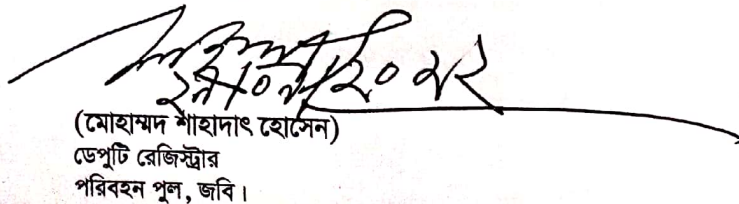 (মোহাম্মদ শাহাদাৎ হোসেন)
ডেপুটি রেজিস্ট্রার
পরিবহন পুল, জবি।